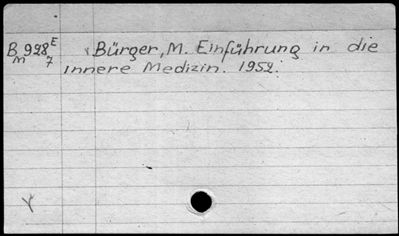 B 928 E Bürger, M. Einführung in die
M 7 innere Medizin. 1952.